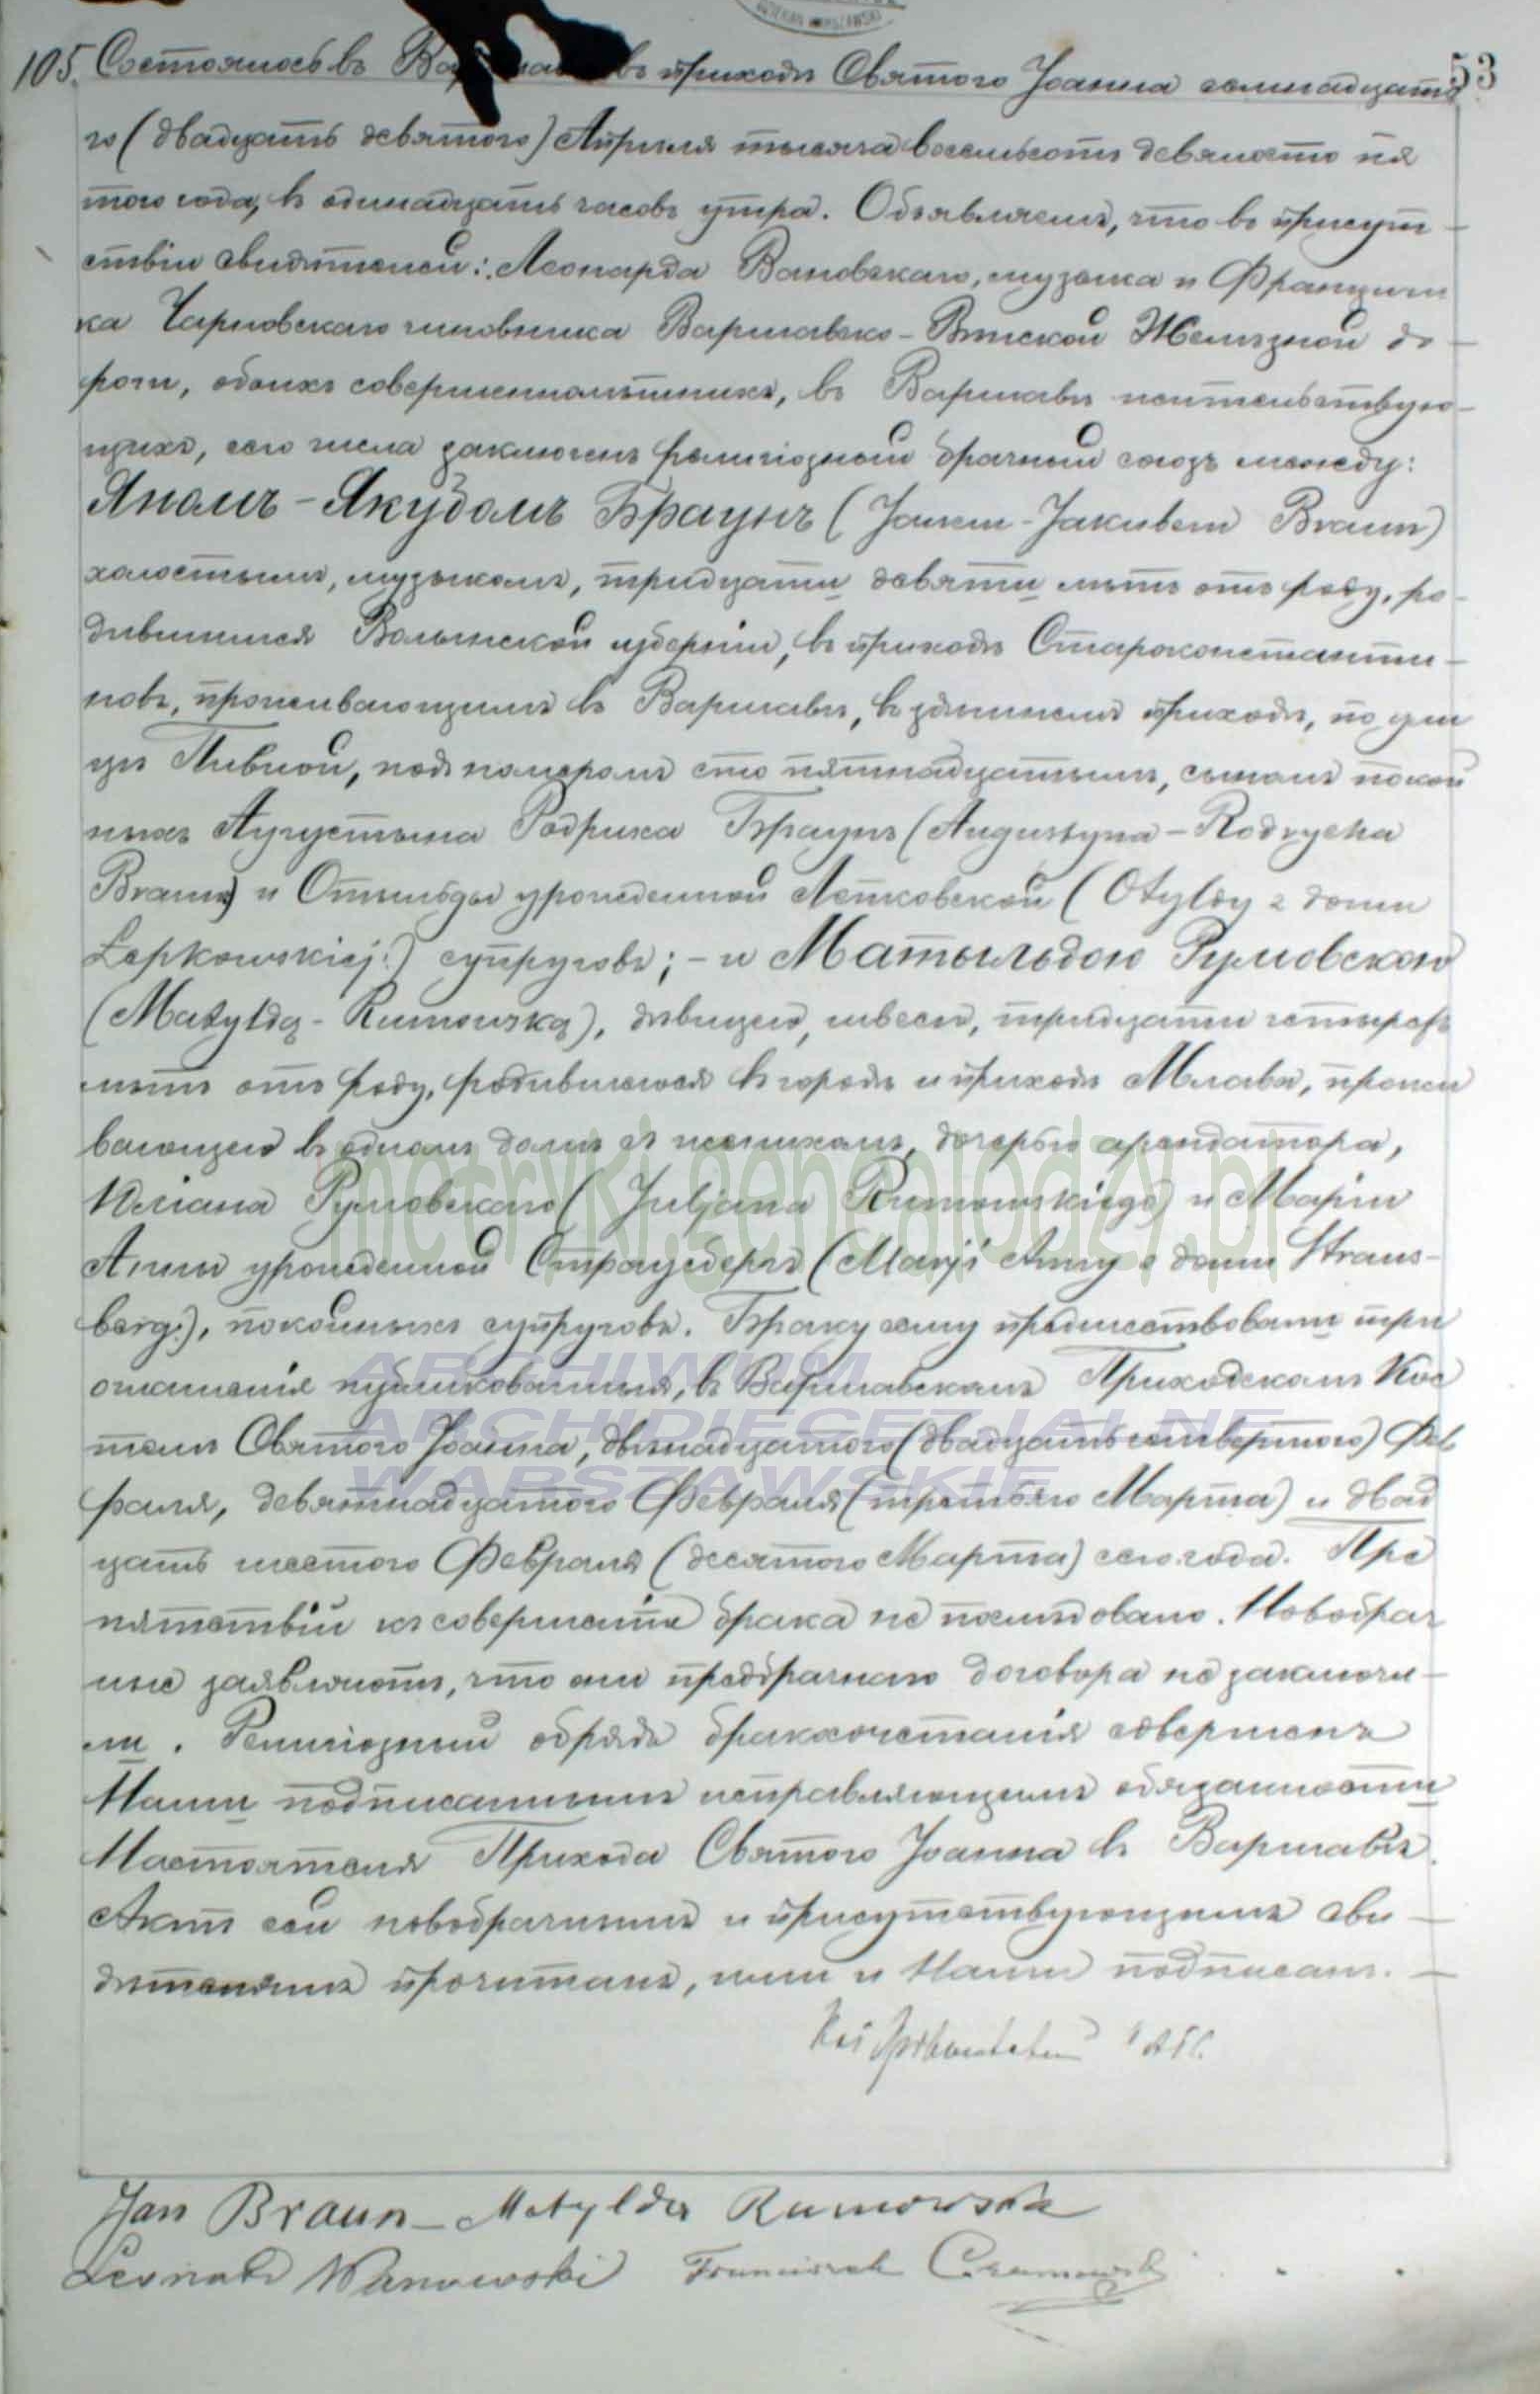 53
105. Состоялось въ Ва въ приходѣ Святого Іоанна семнадцата
го (двадцать девятого) Апрѣля тысяча восемьсотъ девяносто пя
того года, въ одинадцать часовъ утра. Объявляемъ, что въ присут-
ствіи свидѣтелей: Леонарда Вановскаго, музыка и Францишка
ка Чарновскаго чиновника Варшавско-Вѣнской Желѣзной до-
роги, обоихъ совершеннолѣтнихъ, въ Варшавѣ жительствую-
щихъ, сего числа заключенъ религіозный брачный союзъ между:
Яномъ-Якубомъ Браунъ (Janem-Jakubem Braun)
холостымъ, музыкомъ, тридцати девяти лѣтъ отъ роду, ро-
дившимся Волынской губерніи, въ приходѣ Староконстанти-
новъ, проживающимъ въ Варшавѣ, въ здѣшнемъ приходѣ, по ули
цѣ Пивной, подъ номеромъ сто пятнадцатымъ, сыномъ покой
ныхъ Аугустына Родриха Браунъ (Augustyna-Rodrycha
Braun) и Отыльды урожденной Лепковской (Otyldy z domu
Łepkowskiej:) супруговъ; - и Матыльдою Румовскою
(Matyldą-Rumowską), дѣвицею, швеею, тридцати четырехъ
лѣтъ отъ роду, родившеюся въ городѣ и приходѣ Млавѣ, прожи
вающею въ одномъ домѣ съ женихомъ, дочерью арендатора,
Юліана Румовскаго (Juljana Rumowskiego) и Маріи
Анны урожденной Страусбергъ (Marji Anny z domu Straus-
berg:), покойныхъ супруговъ. Браку сему предшествовали три
оглашенія публикованныя, въ Варшавскомъ Приходскомъ Кос
телѣ Святого Іоанна, двѣнадцатого (двадцать четвертого) Фев
раля, девятнадцатого Февраля (третьяго Марта) и двад
цать шестого Февраля (десятого Марта) сего года. Пре
пятствій къ совершенію брака не послѣдовало. Новобрач
ные заявляютъ, что они предбрачнаго договора не заключи-
ли. Религіозный обрядъ бракосочетанія совершенъ
Нами подписаннымъ исправляющимъ обязанности
Настоятеля Прихода Святого Іоанна въ Варшавѣ.
Актъ сей новобрачнымъ и присутствующимъ сви-
дѣтелямъ прочитанъ, ими и Нами подписанъ. -
Jan Braun - Matylda Rumowska
Leonard Wanowski Franciszek Czarnowski
metryki.genealodzy.pl
ARCHIWUM
ARCHIDIECEZJALNE
WARSZAWSKIE